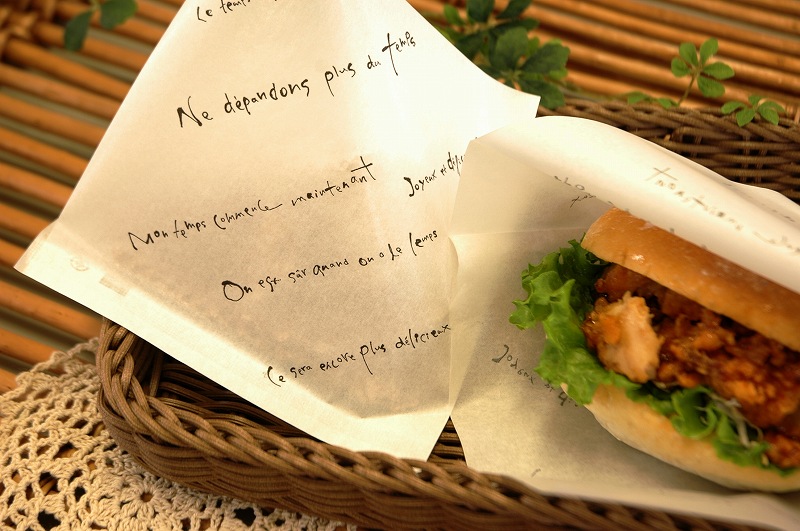 Ce temps
Ne dépandons plus du temps
Mon temps commence maintenant
Joyeux et délic
On est sûr quand on a le temps
Ce sera encore plus délicieux
Joyeux et d